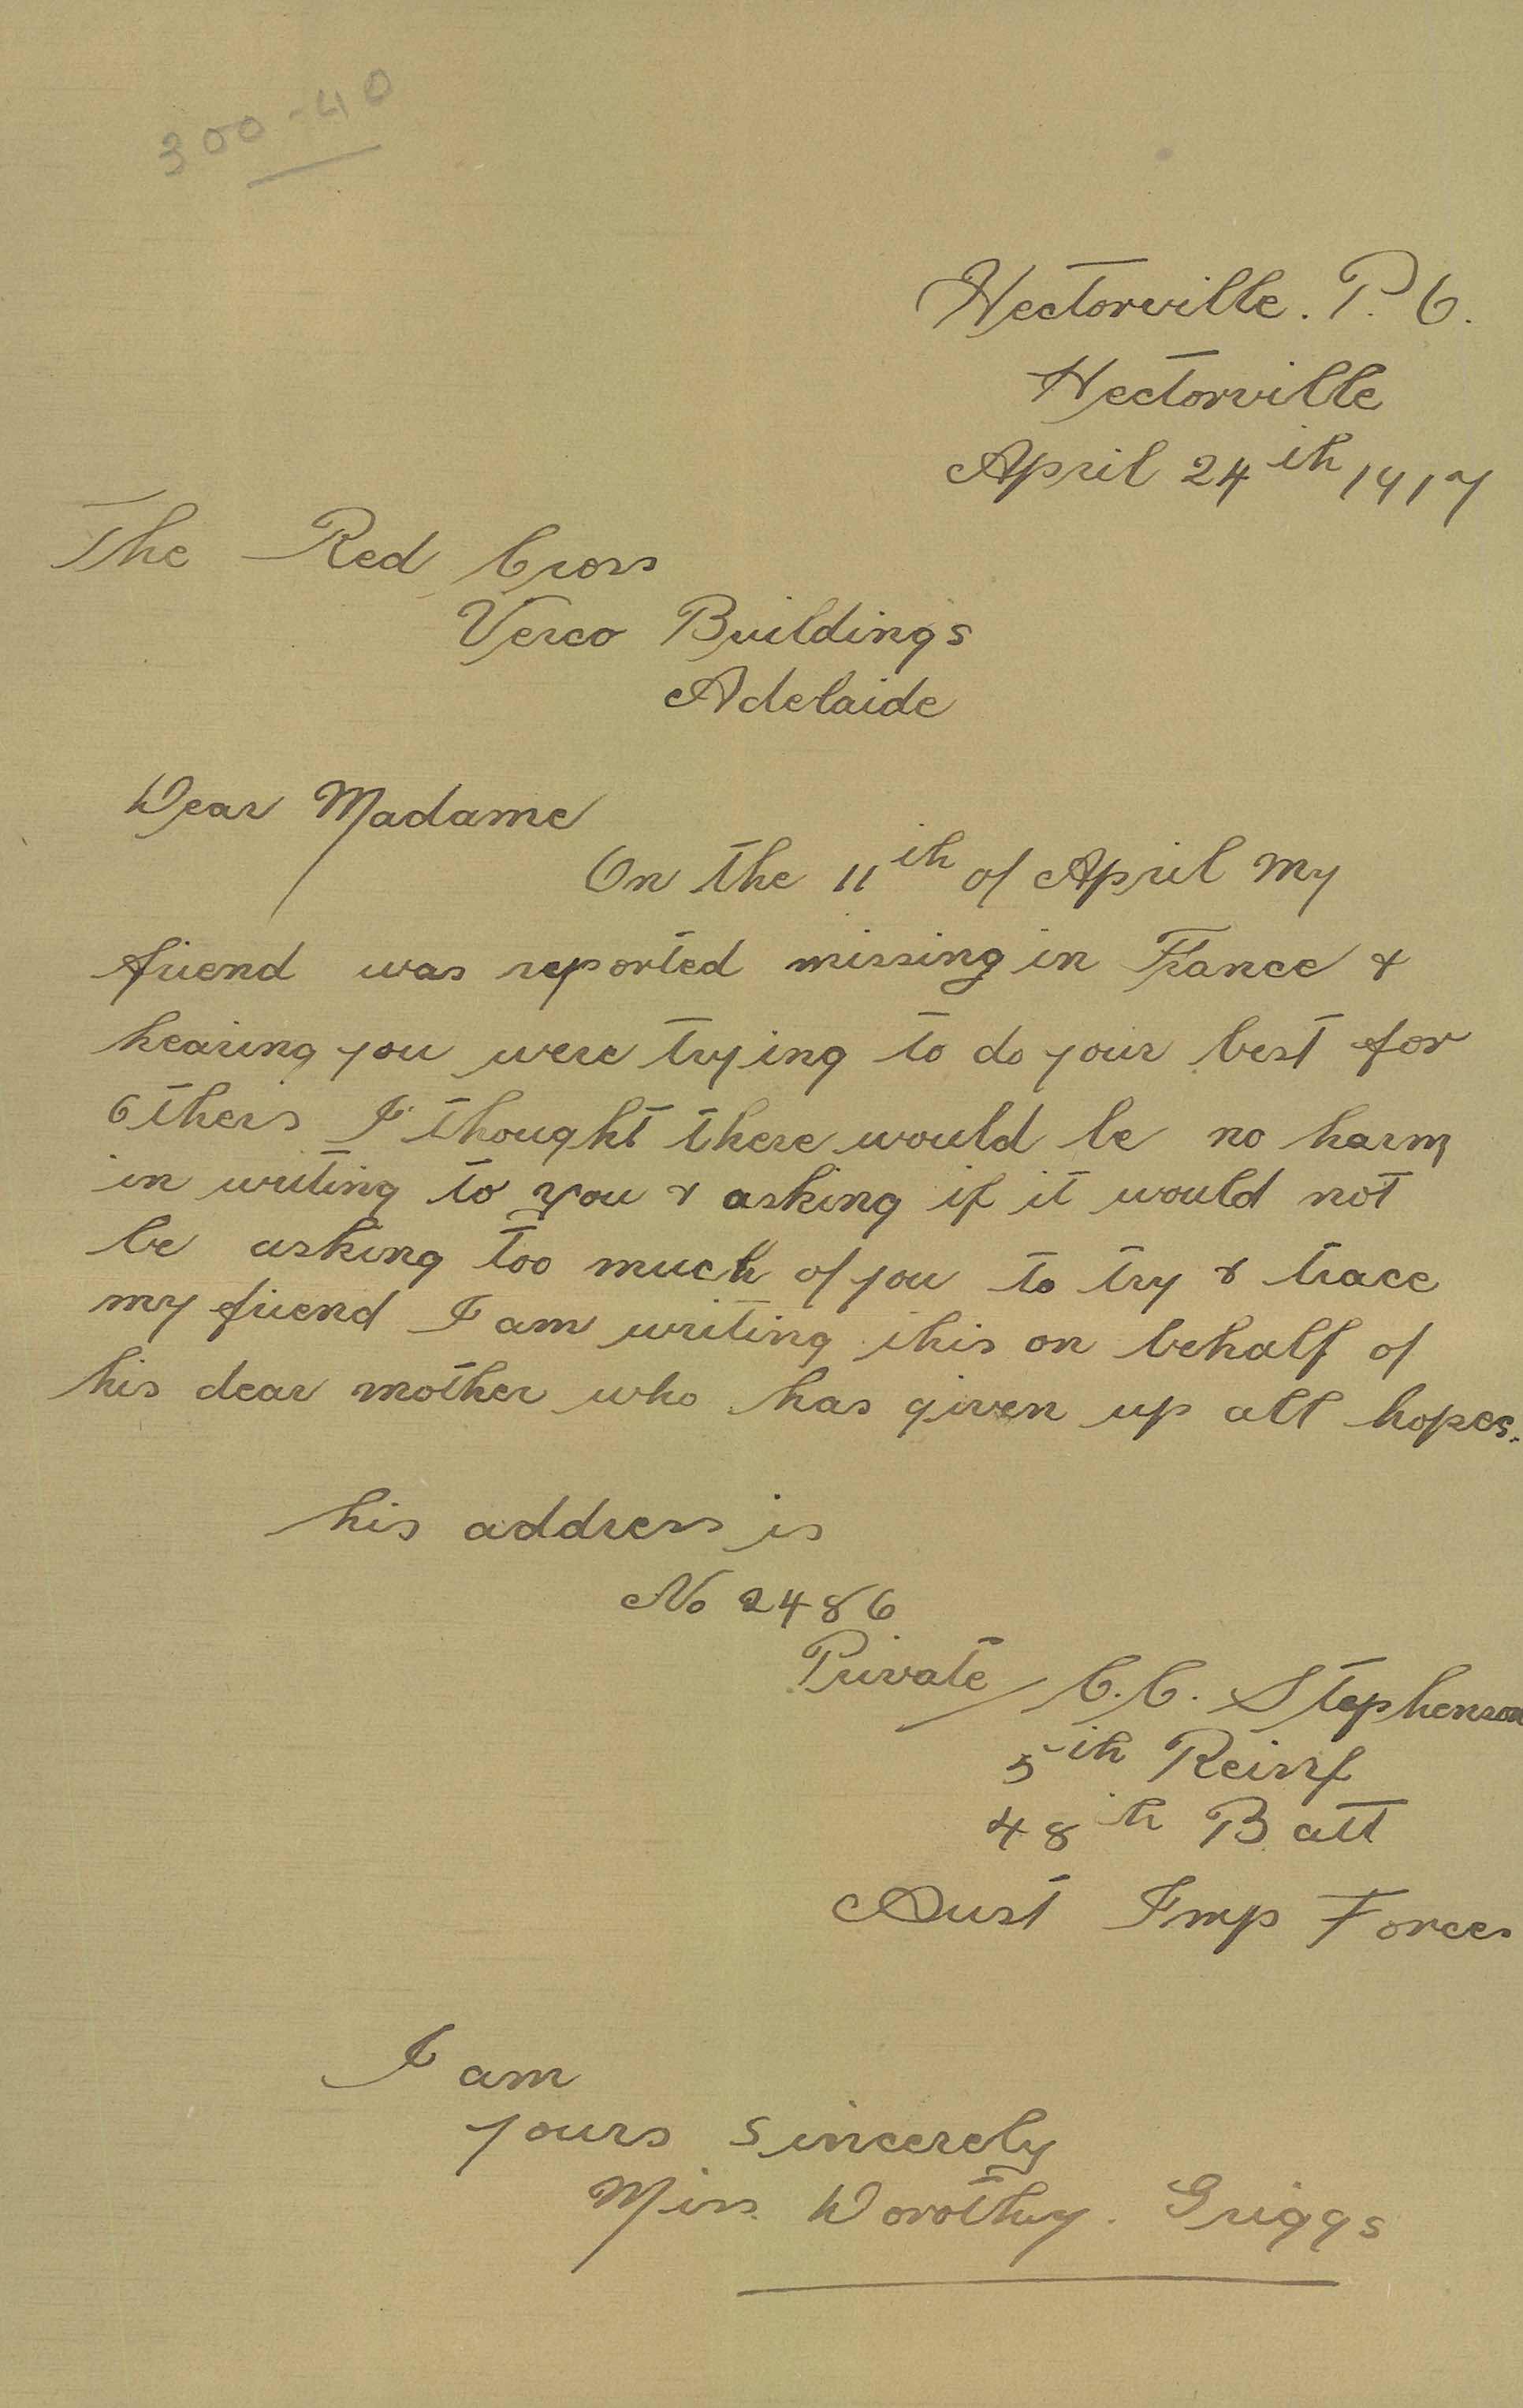 300-40
Hectorville. P. O.
Hectorville
April 24th 1917
The Red Cross
Verco Buildings
Adelaide
Dear Madame
On the 11th of April my
friend was reported missing in France &
hearing you were trying to do your best for
others I thought there would be no harm
in writing to you & asking if it would not
be asking too much of you to try & trace
my friend I am writing this on behalf of
his dear mother who has given up all hopes.
his address is
No 2486
Private C. C. Stephenson
5th Reinf
48th Batt
Aust Imp Forces
I am
yours sincerely
Miss. Dorothy. Griggs